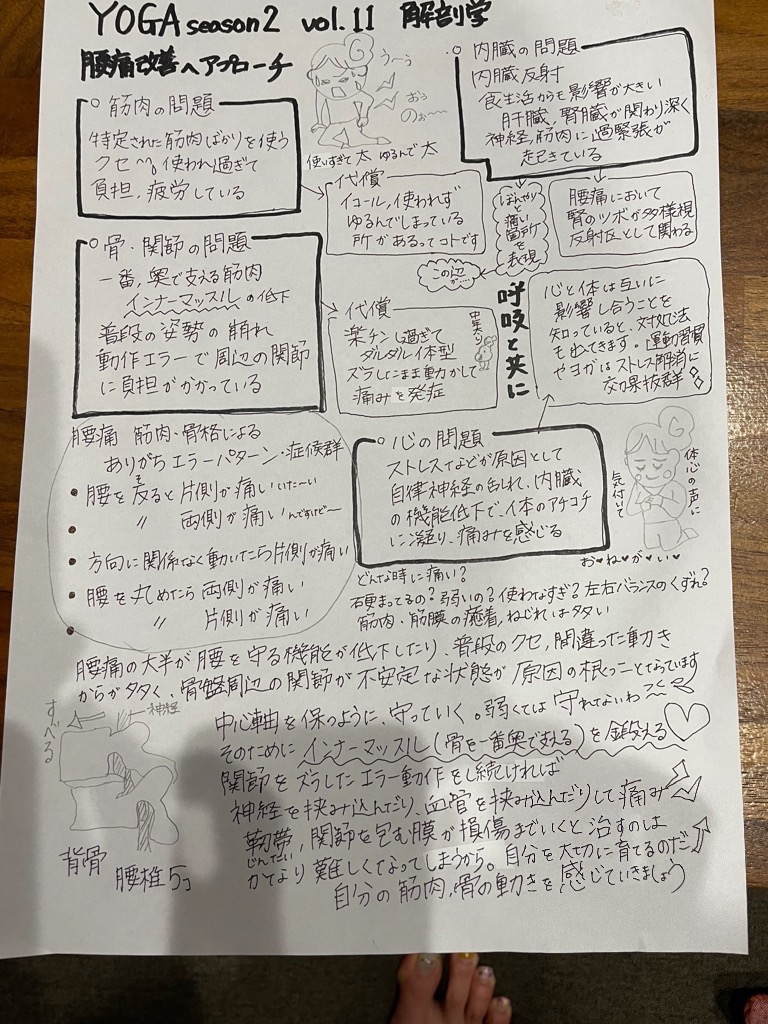 YOGA season2 vol.11 解剖学
腰痛改善へアプローチ
○ 筋肉の問題
特定された筋肉ばかりを使う
クセ、使われ過ぎて
負担、疲労している
う〜う
おぅ
のぉ〜
使いすぎて太 ゆるんで太
○ 内臓の問題
内臓反射
食生活からも影響が大きい
肝臓、腎臓が関わり深く
神経、筋肉に過緊張が
起きている
代償
イコール、使われず
ゆるんでしまっている
所があるってコトです
ぼんやりと
痛い
箇所を
表現
この辺が…
腰痛において
腎のツボが多様視
反射区として関わる
○ 骨・関節の問題
一番、奥で支える筋肉
インナーマッスルの低下
普段の姿勢の崩れ
動作エラーで周辺の関節
に負担がかかっている
代償
楽チンし過ぎて
ダルダル体型
ズラしたまま動かして
痛みを発症
呼吸と共に
心と体は互いに
影響し合うことを
知っていると、対処法
も出てきます。運動習慣
やヨガはストレス解消に
効果抜群
腰痛 筋肉・骨格による
ありがちエラーパターン・症候群
• 腰を反ると片側が痛いいた〜い
• 〃 両側が痛いんですけどー
• 方向に関係なく動いたら片側が痛い
• 腰を丸めたら両側が痛い
• 〃 片側が痛い
○ 心の問題
ストレスなどが原因として
自律神経の乱れ、内臓
の機能低下で、体のアチコチ
に凝り、痛みを感じる
体心の声に
気付いて
お♥ね♥が♥い♥
どんな時に痛い?
硬まってるの?弱いの?使わなすぎ?左右バランスのくずれ?
筋肉・筋膜の癒着、ねじれは多い
腰痛の大半が腰を守る機能が低下したり、普段のクセ、間違った動き
からが多く、骨盤周辺の関節が不安定な状態が原因の根っことなっています
すべる
神経
背骨
腰椎5コ
中心軸を保つように、守っていく。弱くては守れないわ
そのためにインナーマッスル(骨を一番奥で支える)を鍛える♡
関節をズラしたエラー動作をし続ければ
神経を挟み込んだり、血管を挟み込んだりして痛み
靭帯、関節を包む膜が損傷までいくと治すのは
じんたい
かなり難しくなってしまうから。自分を大切に育てるのだ
自分の筋肉、骨の動きを感じていきましょう